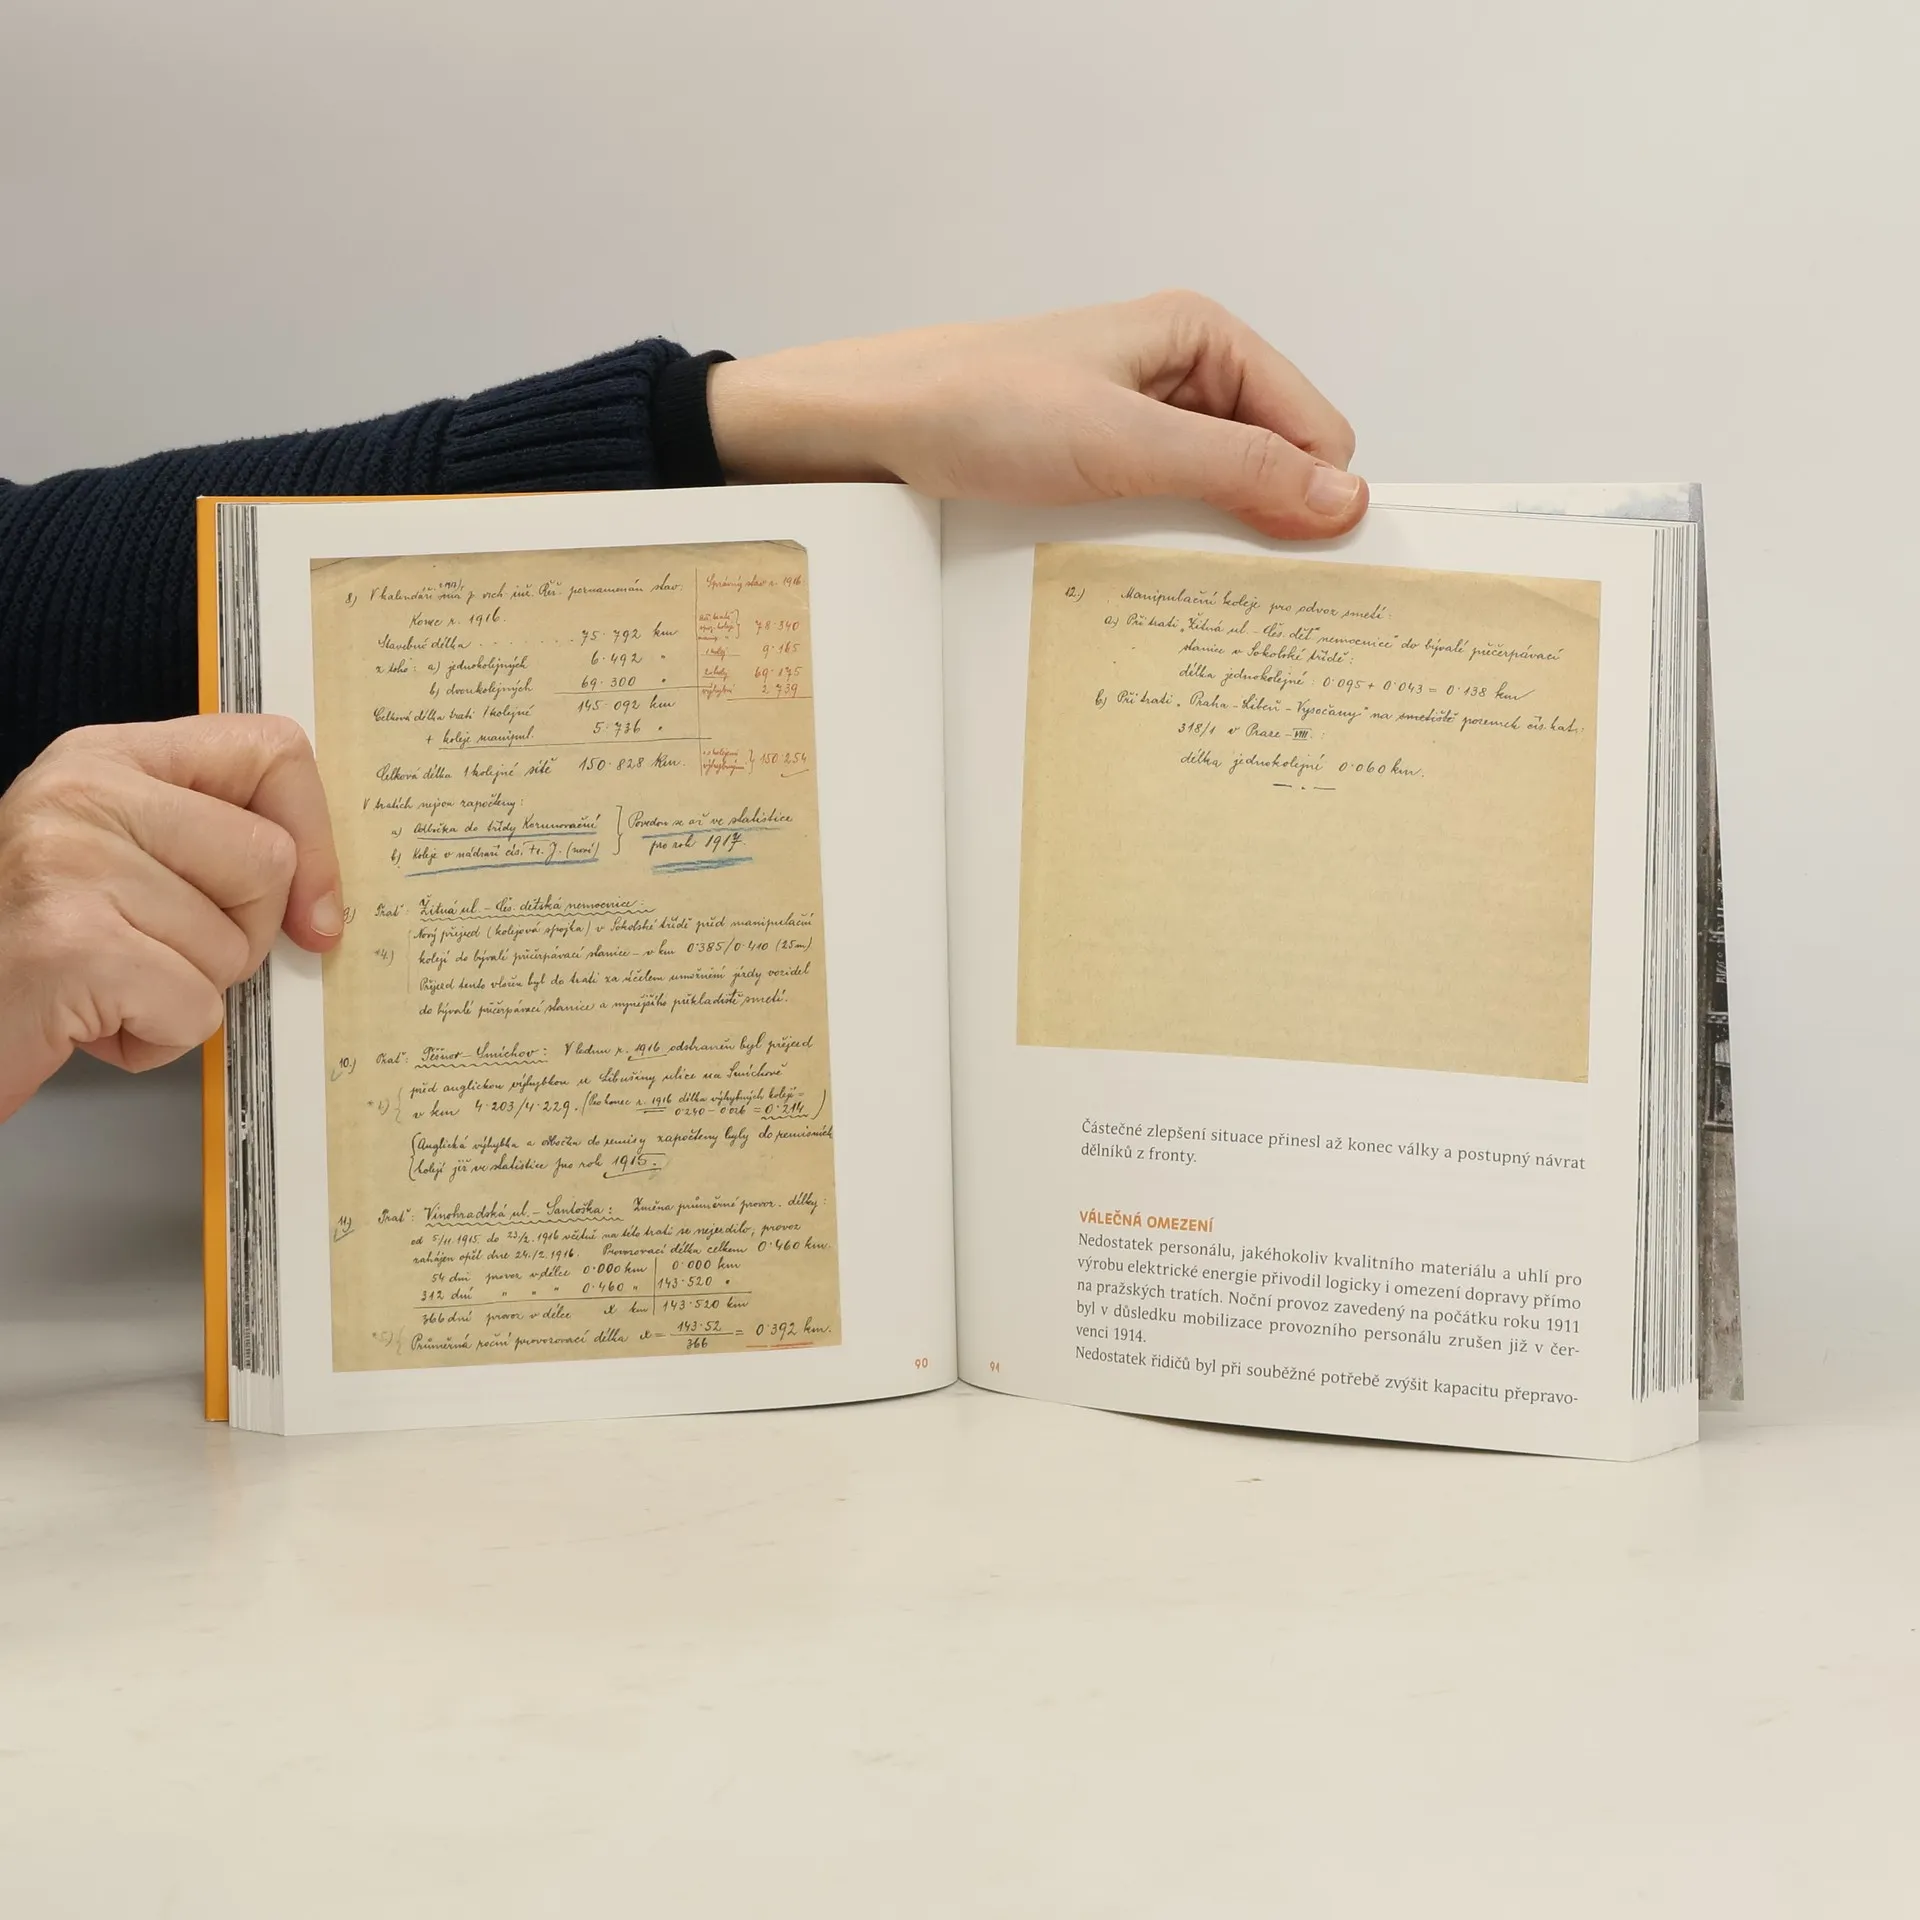 8) V kalendáři p. vrch. inž. Řeř. poznamenán stav:
Správný stav r. 1916
Konec r. 1916.
Stavební délka . . . . . . . 75·792 km
78·340
z toho: a) jednokolejných 6·492 "
9·165
b) dvoukolejných 69·300 "
69·175
výhybni 2·739
Celková délka trati 1kolejné 145·092 km
+ koleje manipul. 5·736 "
Celková délka 1kolejné sítě 150·828 km.
150·254
V tratích nejsou započteny:
a) Odbočka do třídy Korunovační
b) Koleje v nádraží cís. Fr. J. (nové)
Povedou se až ve statistice
pro rok 1917.
9.) Trať: Žitná ul. – Čes. dětská nemocnice:
Nový přejezd (kolejová spojka) v Sokolské třídě před manipulační
*4.) kolejí do bývalé přečerpávací stanice – v km 0·385/0·410 (25m)
Přejezd tento vložen byl do trati za účelem umožnění jízdy vozidel
do bývalé přečerpávací stanice a nynějšího překladiště smetí.
10.) Trať: Těšnov – Smíchov: V lednu r. 1916 odstraněn byl přejezd
před anglickou výhybkou u Libušiny ulice na Smíchově
v km 4·203/4·229. (Pro konec r. 1916 délka výhybných kolejí =
0·240 – 0·026 = 0·214)
(Anglická výhybka a odbočka do remisy započteny byly do remisních
kolejí již ve statistice pro rok 1915.)
11.) Trať: Vinohradská ul. – Santoška: Změna průměrné provoz. délky:
od 5/11. 1915. do 23/2. 1916 včetně na této trati se nejezdilo, provoz
zahájen opět dne 24./2. 1916. Provozovací délka celkem 0·460 km.
54 dní provoz v délce 0·000 km 0·000 km
312 dní " " " 0·460 " 143·520 "
366 dní provoz v délce x km 143·520 km
*5) Průměrná roční provozovací délka x = 143·52 / 366 = 0·392 km.
90
12.) Manipulační koleje pro odvoz smetí:
a) Při trati „Žitná ul. – Čes. dět. nemocnice" do bývalé přečerpávací
stanice v Sokolské třídě:
délka jednokolejné: 0·095 + 0·043 = 0·138 km
b) Při trati „Praha – Libeň – Vysočany" na smetiště pozemek čís. kat.:
318/1 v Praze – VIII. :
délka jednokolejné 0·060 km.
Částečné zlepšení situace přinesl až konec války a postupný návrat
dělníků z fronty.
VÁLEČNÁ OMEZENÍ
Nedostatek personálu, jakéhokoliv kvalitního materiálu a uhlí pro
výrobu elektrické energie přivodil logicky i omezení dopravy přímo
na pražských tratích. Noční provoz zavedený na počátku roku 1911
byl v důsledku mobilizace provozního personálu zrušen již v čer-
venci 1914.
Nedostatek řidičů byl při souběžné potřebě zvýšit kapacitu přepravo-
91